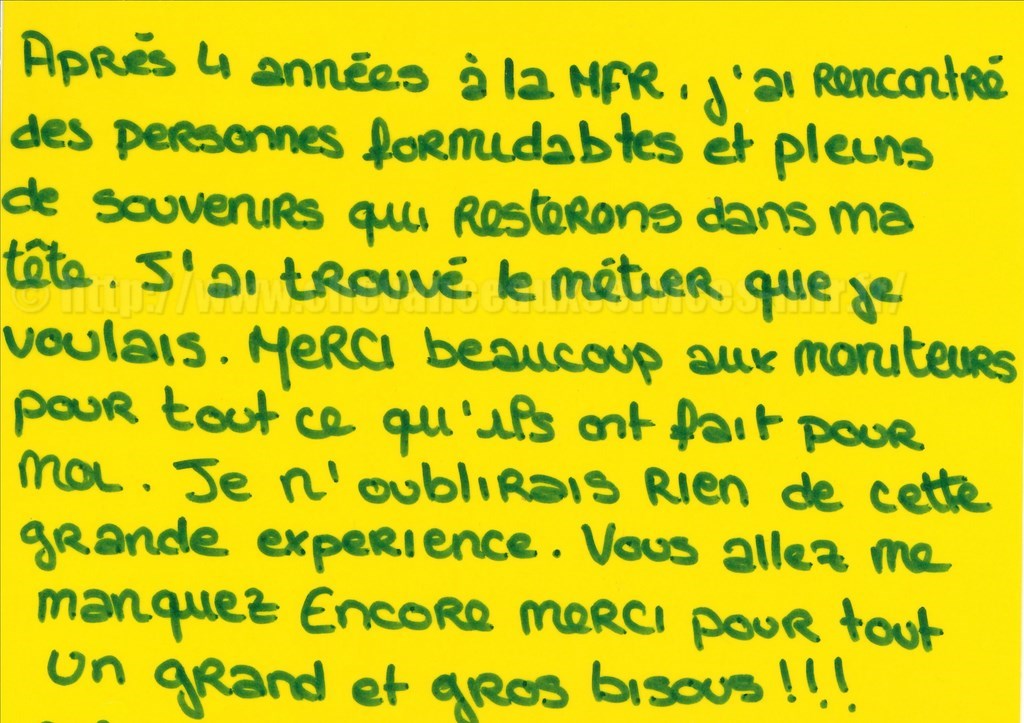 Après 4 années à la MFR, j'ai rencontré
des personnes formidables et pleins
de souvenirs qui resterons dans ma
tête. J'ai trouvé le métier que je
voulais. Merci beaucoup aux moniteurs
pour tout ce qu'ils ont fait pour
moi. Je n'oublirais rien de cette
grande experience. Vous allez me
manquez Encore merci pour tout
un grand et gros bisous !!!